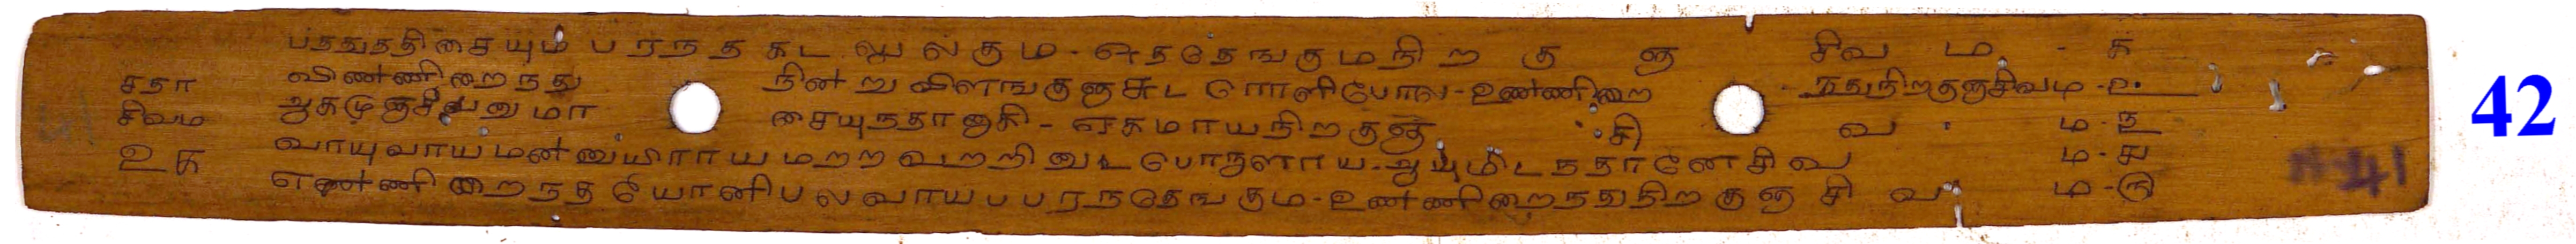 பததுததிசையும பரநத கடலுலகும - ஒததெஙகுமநிறகுஞ சிவம - க
சதா விண்ணிறைநது நின்று விளஙகுஞசுடரொளிபோல - உண்ணிறைநதுநிறகுஞசிவம - உ
சிவம ஆகமுஞசீவனுமாசையுநதானாகி - ஏகமாயநிறகுஞ சிவம - ௩
உக வாயுவாய்மன்னுயிராயமறறவறறினுடபொருளாய - ஆயுமிடநதானே சிவம - ௪
எண்ணிறைநதயோனிபலவாயபபரநதெஙகும - உண்ணிறைநதுநிறகுஞசிவம - ௫
41
42